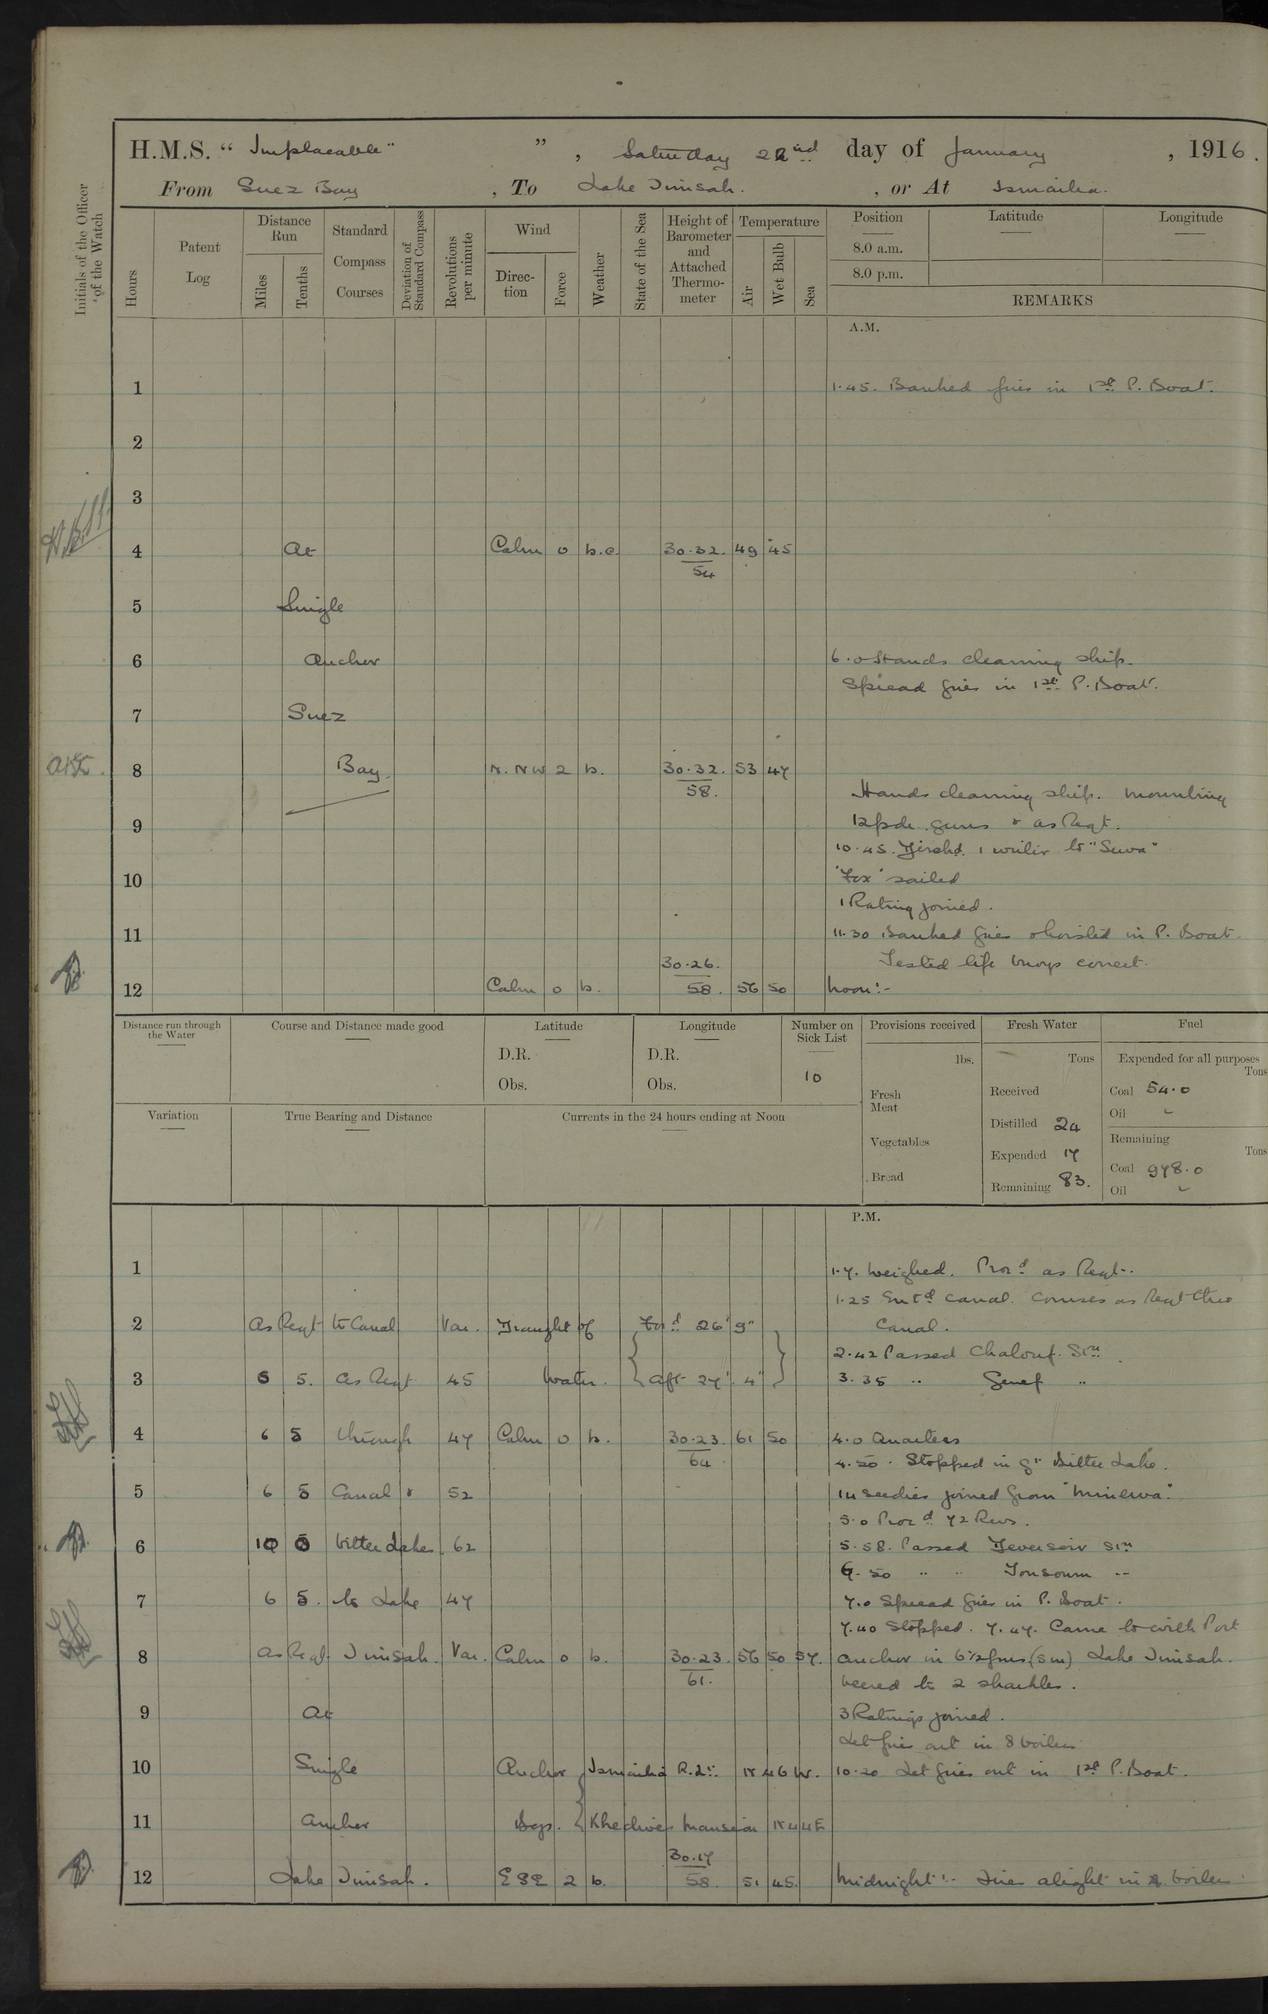 H.M.S. “ Implacable” ” , Saturday 22nd day of January , 1916.
From Suez Bay , To Lake Timsah. , or At Ismailia.
Initials of the Officer of the Watch
Hours
Patent Log
Distance Run
Miles
Tenths
Standard Compass Courses
Deviation of Standard Compass
Revolutions per minute
Wind
Direc-tion
Force
Weather
State of the Sea
Height of Barometer and Attached Thermo-meter
Temperature
Air
Wet Bulb
Sea
Position
Latitude
Longitude
8.0 a.m.
8.0 p.m.
REMARKS
A.M.
1 1.45. Banked fires in 1st P. Boat.
2
3
4 At Calm 0 b.c. 30.32. 49 45
54
5 Single
6 Anchor 6.0 Hands cleaning ship.
Spread fires in 1st P. Boat.
7 Suez
8 Bay. N. NW 2 b. 30.32. 53 47
58.
Hands cleaning ship. Mounting
9 12pdr. guns & as Reqt.
10.45. Dischd. 1 writer to "Suva"
10 "Fox" sailed
1 Rating joined.
11 11.30 Banked fires & hoisted in P. Boat.
30.26. Tested life buoys correct.
12 Calm 0 b. 58. 56 50 Noon:-
Distance run through the Water
Course and Distance made good
Latitude
Longitude
Number on Sick List
Provisions received
Fresh Water
Fuel
D.R.
D.R.
Obs.
Obs.
10
lbs.
Tons
Expended for all purposes
Tons
Fresh Meat
Received
Coal 54.0
Oil -
Variation
True Bearing and Distance
Currents in the 24 hours ending at Noon
Distilled 24
Remaining
Vegetables
Expended 17
Tons
Coal 978.0
Bread
Remaining 83.
Oil -
P.M.
1 1.7. Weighed. Procd as Reqt.
1.25 Entd Canal. Courses as Reqt thro
2 As Reqt to Canal Var. Draught of Ford 26' 9" Canal.
2.42 Passed Chalouf. Stn.
3 5 5. As Reqt 45 Water. Aft 27' 4" 3.35 " Genef "
4 6 5 through 47 Calm 0 b. 30.23. 61 50 4.0 Quarters
64
4.50. Stopped in Gt Bitter Lake.
5 6 5 Canal & 52 14 Seedies joined from "Minerva".
5.0 Procd 72 Revs.
6 10 5 Bitter Lakes. 62 5.58. Passed Deversoir Stn
6.50 " " Tousoum "
7 6 5. to Lake 47 7.0 Spread fires in P. Boat.
7.40 Stopped. 7.47. Came to with Port
8 As Reqt. Timsah. Var. Calm 0 b. 30.23. 56 50 57. anchor in 6½ fms. (sm) Lake Timsah.
61.
Veered to 2 shackles.
9 At 3 Ratings joined.
Let fires out in 8 boilers
10 Single Anchor Ismailia R. Lt. N 46 W. 10.20 Let fires out in 1st P. Boat.
11 Anchor Bgs. Khedives Mansion N 44 E
30.17
12 Lake Timsah. ESE 2 b. 58. 51 45. Midnight:- Fires alight in boilers